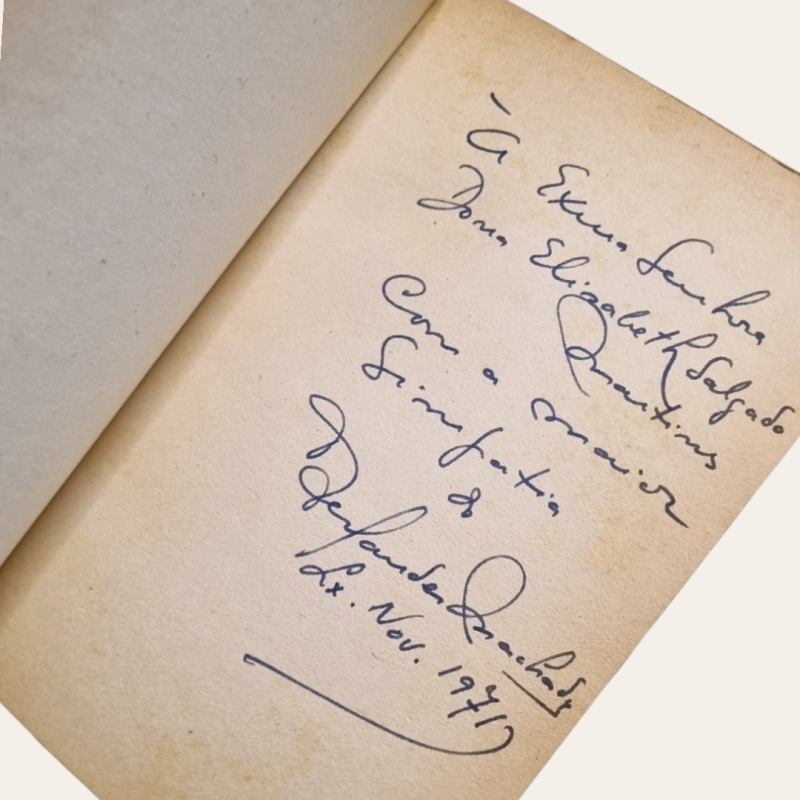 À Exma Senhora
Dona Elizabeth Salgado
Martins
Com a maior
Simpatia
do
Fernandes Machado
Lx. Nov. 1971